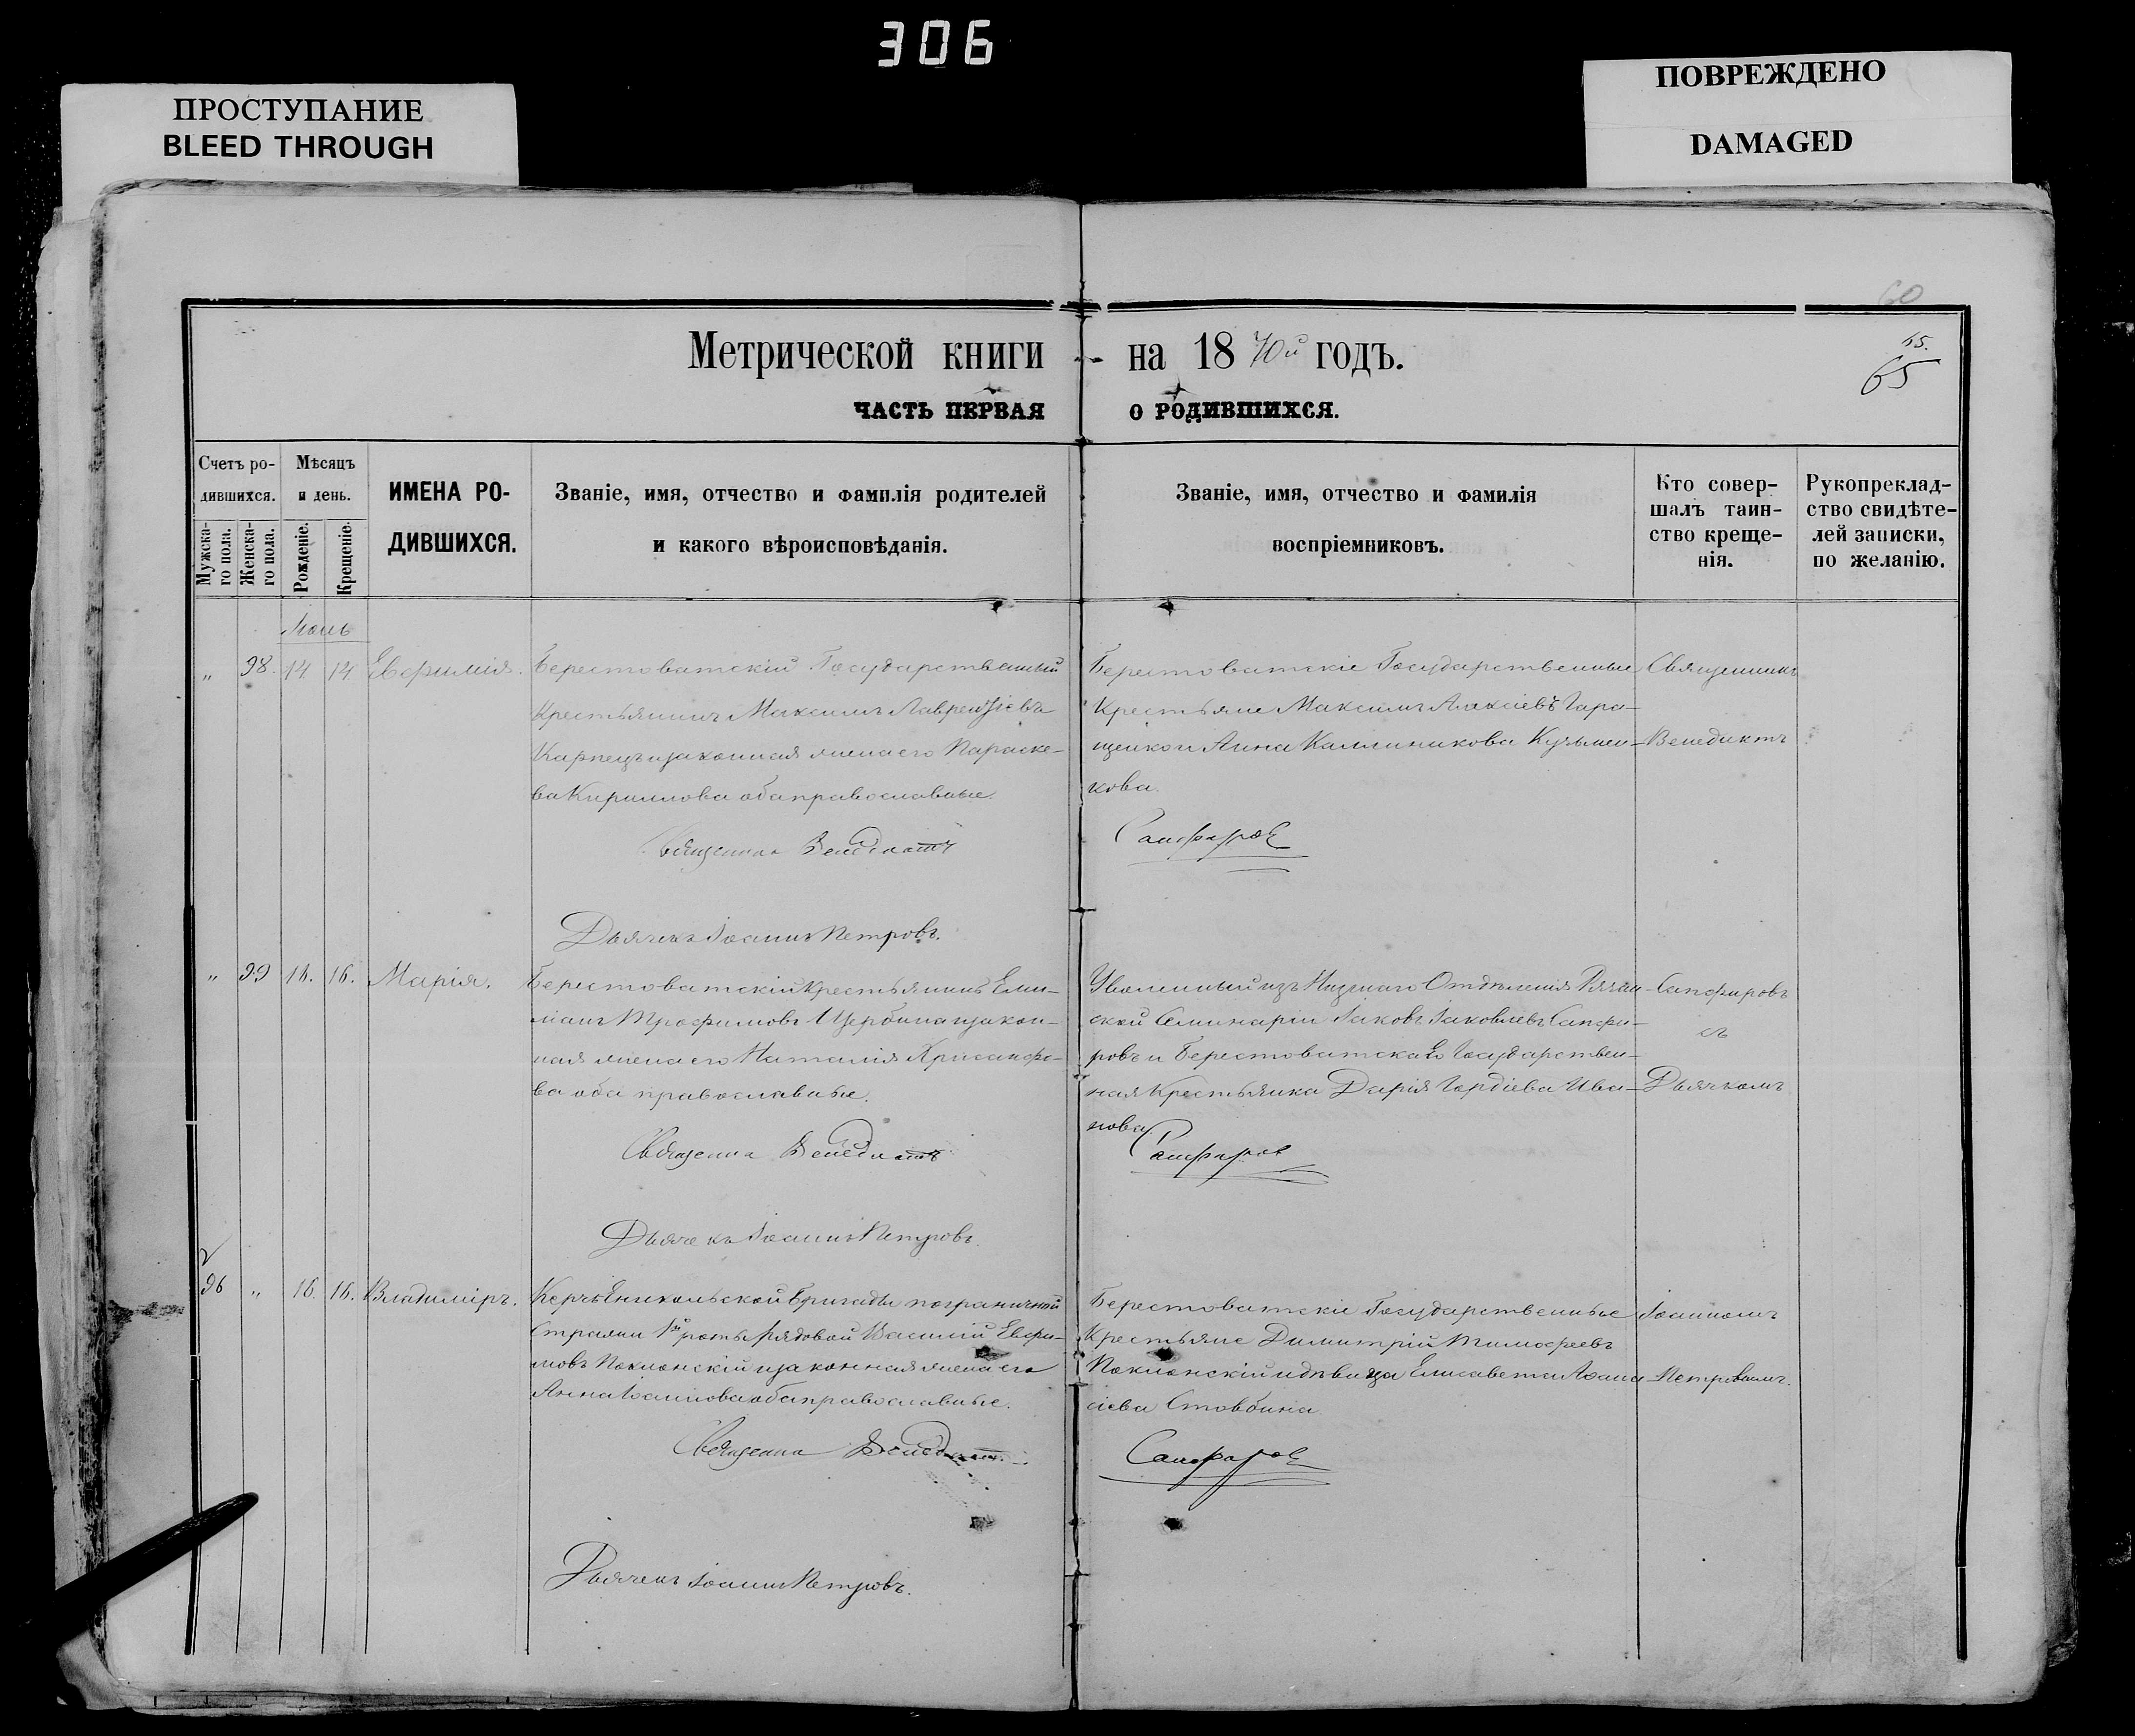 306
ПРОСТУПАНИЕ
BLEED THROUGH
ПОВРЕЖДЕНО
DAMAGED
60
65.
65
Метрической книги на 1870й годъ.
ЧАСТЬ ПЕРВАЯ О РОДИВШИХСЯ.
Счетъ ро-
дившихся.
Мужска-
го пола.
Женска-
го пола.
Мѣсяцъ
и день.
Рожденіе.
Крещеніе.
ИМЕНА РО-
ДИВШИХСЯ.
Званіе, имя, отчество и фамилія родителей
и какого вѣроисповѣданія.
Званіе, имя, отчество и фамилія
воспріемниковъ.
Кто совер-
шалъ таин-
ство креще-
нія.
Рукоприклад-
ство свидѣте-
лей записки,
по желанію.
„ 98. 14 14 Евфимія.
Берестоватскій Государственный
Крестьянинъ Максимъ Лаврентіевъ
Карпецъ и законная жена его Параске-
ва Кириллова оба православные.
Священникъ Венедиктъ
Дьячекъ Іоаннъ Петровъ.
Берестоватскіе Государственные
Крестьяне Максимъ Алексіевъ Гара-
щенко и Анна Каллиникова Кузьмен-
кова.
Сапфировъ
Священникъ
Венедиктъ
„ 99 16. 16. Марія.
Берестоватскій Крестьянинъ Еми-
ліанъ Трофимовъ Щербина и закон-
ная жена его Наталія Хрисанфо-
ва оба православные.
Священникъ Венедиктъ
Дьячекъ Іоаннъ Петровъ.
Уволенный изъ Низшаго Отдѣленія Рязан-
ской Семинаріи Іаковъ Іаковлевъ Сапфи-
ровъ и Берестоватская Государствен-
ная Крестьянка Дарія Гордіева Ива-
нова
Сапфировъ
Сапфировъ
съ
Дьячкомъ
96 „ 16. 16. Владиміръ.
КерчьЕникольской Бригады пограничной
Стражи 1й роты рядовой Василій Евфи-
мовъ Поклонскій и законная жена его
Анна Іоаннова оба православные.
Священникъ Венедиктъ
Дьячекъ Іоаннъ Петровъ.
Берестоватскіе Государственные
Крестьяне Димитрій Тимофеевъ
Поклонскій и дѣвица Елисавета Афана-
сіева Стовбина
Сапфировъ
Іоанномъ
Петровымъ.